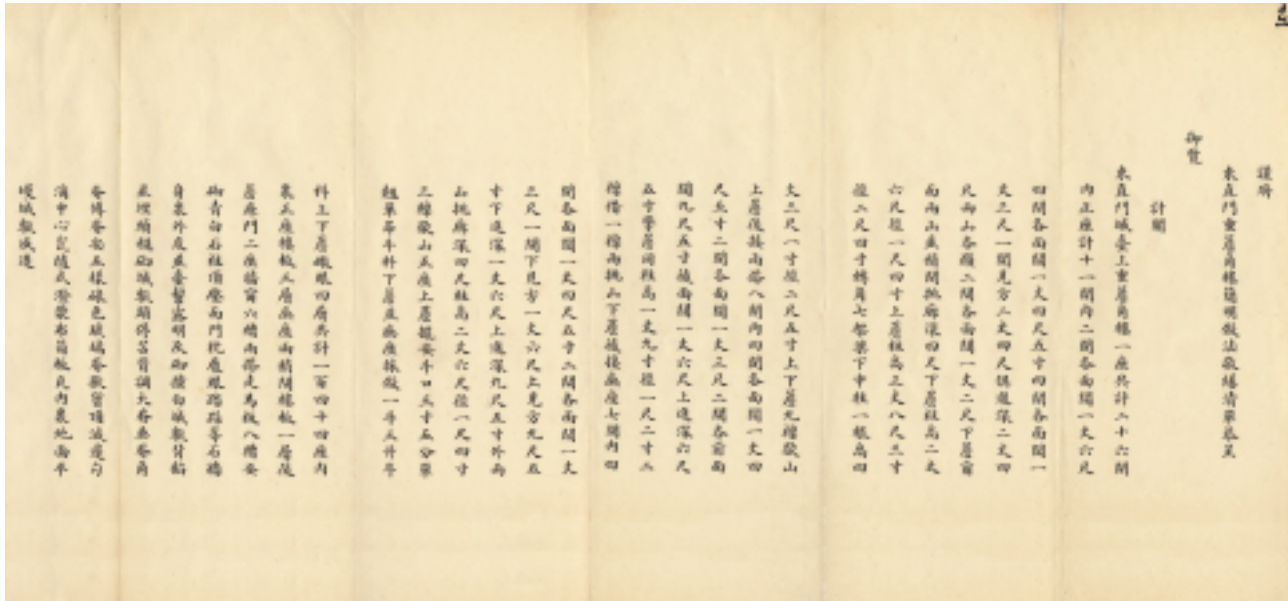 謹將
東直門重簷角樓簡明做法敬繕清單恭呈
御覽
計開
東直門城臺上重簷角樓一座共計二十六間
內正座計十一間內二間各面闊一丈六尺
四間各面闊一丈四尺五寸四間各面闊一
丈三尺一間見方二丈四尺俱進深二丈四
尺兩山各顯二間各面闊一丈二尺下簷前
面兩山並梢間挑廊深四尺下簷柱高二丈
六尺徑一尺四寸上簷柱高三丈八尺三寸
徑二尺四寸轉角七架梁下中柱一根高四
丈三尺一寸徑二尺五寸上下簷九檁歇山
上簷後接兩搭八間內四間各面闊一丈四
尺五寸二間各面闊一丈三尺二間各前面
闊九尺五寸後面闊一丈六尺上進深六尺
五寸擎簷間柱高一丈九寸徑一尺二寸三
檁借一檁兩挑山下簷後接廡座七間內四
間各面闊一丈四尺五寸二間各面闊一丈
三尺一間下見方一丈六尺上見方九尺五
寸下進深一丈六尺上進深九尺五寸外兩
山挑廊深四尺柱高二丈六尺徑一尺四寸
三檁歇山正座上簷安斗口三寸五分單
翹單昂斗科下簷並廡座採做一斗三升斗
科上下簷 眼四層共計一百四十四座內
裏正座樓板三層廡座兩梢間樓板一層後
簷廡門二座牆 六槽兩搭走馬板八槽安
砌青白石柱頂壓面門枕 眼踏跺等石牆
身裏外皮並臺幫露明灰砌 白城磚背餡
灰 糙砌城磚頭停苫背調大脊垂脊角
脊博脊安五樣綠色琉璃脊獸 頂 瓦勾
滴中心 隨式 瓦內裏地面平
墁城磚 邊